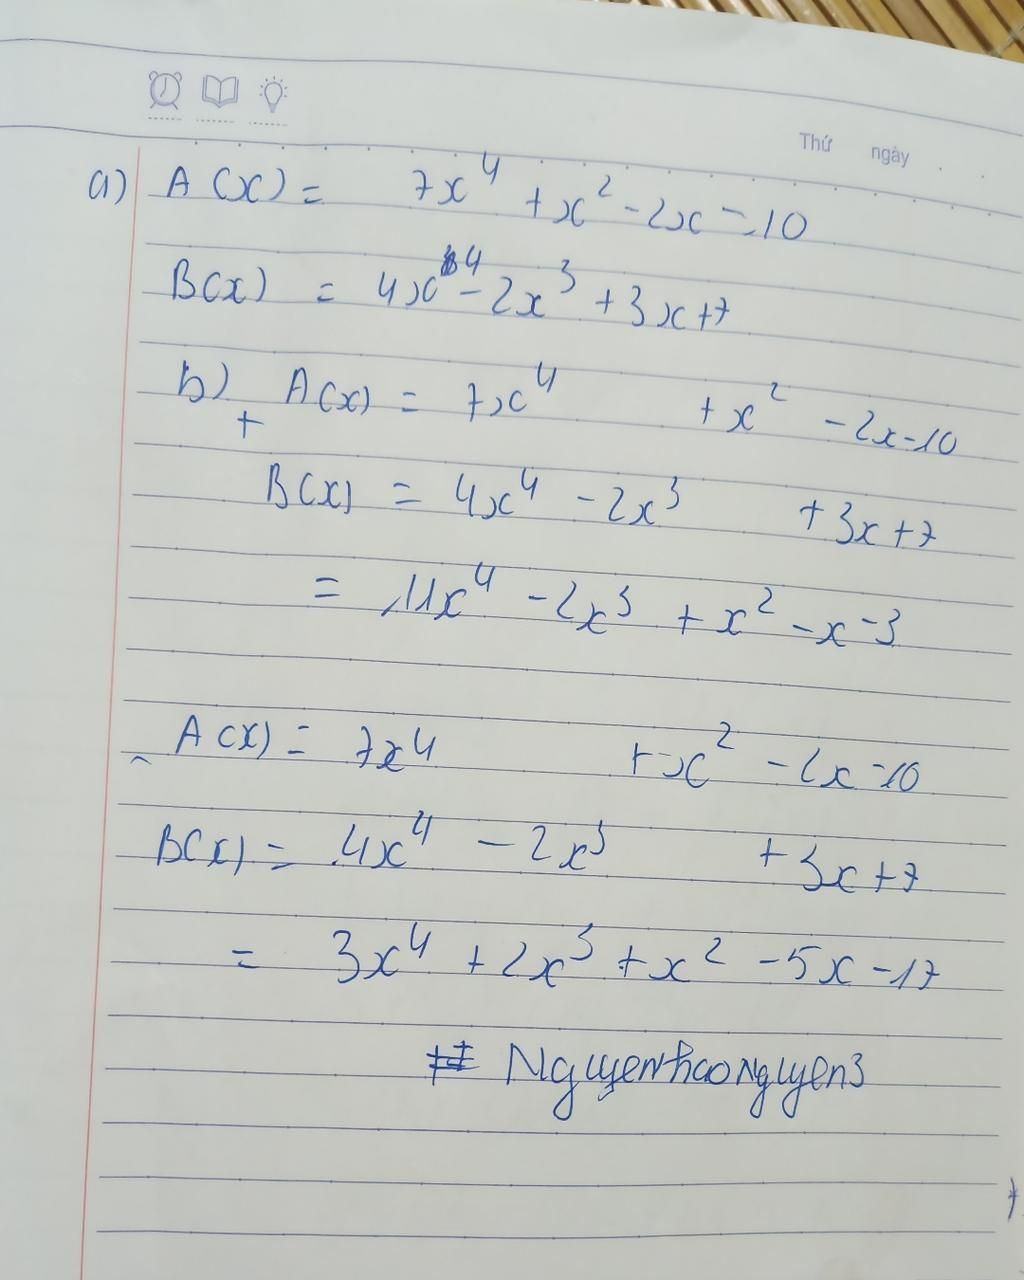 Thứ ngày
a) A(x) = 7x⁴ + x² - 2x - 10
B(x) = 4x⁴ - 2x³ + 3x + 7
b) A(x) = 7x⁴ + x² - 2x - 10
+
B(x) = 4x⁴ - 2x³ + 3x + 7
= 11x⁴ - 2x³ + x² - x - 3
A(x) = 7x⁴ + x² - 2x - 10
-
B(x) = 4x⁴ - 2x³ + 3x + 7
= 3x⁴ + 2x³ + x² - 5x - 17
# Nguyenthaonguyen3